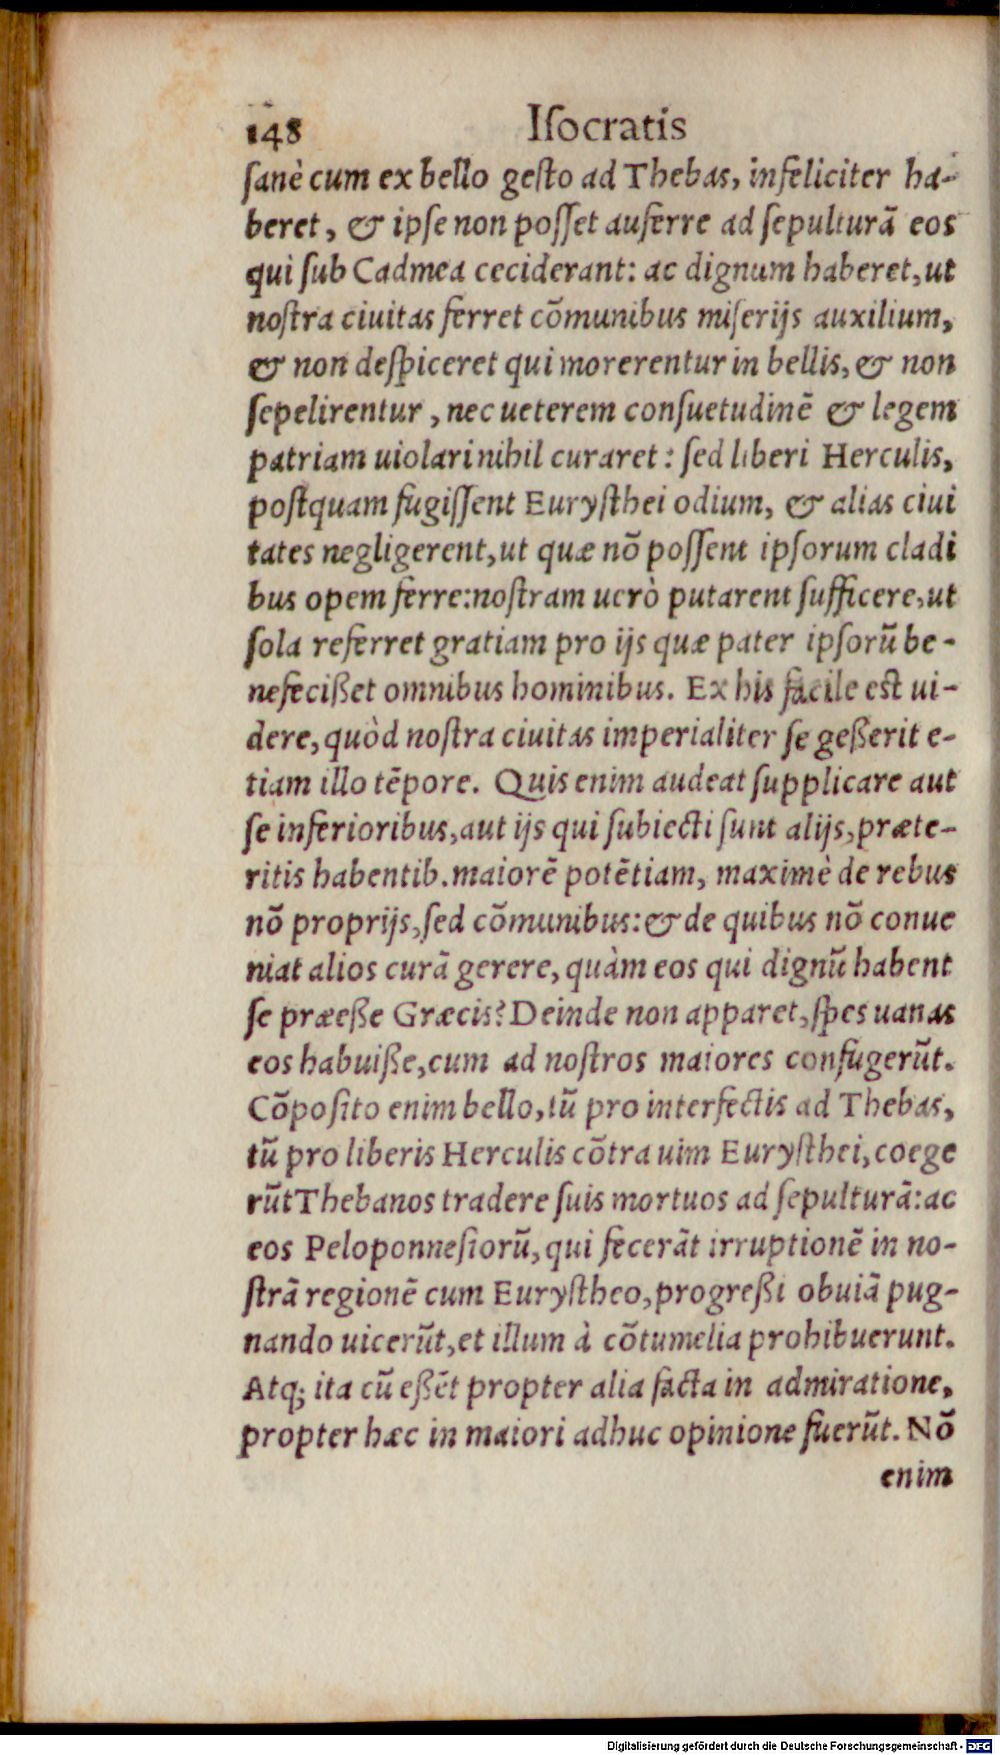 148 Iſocratis
ſanè cum ex bello geſto ad Thebas, infeliciter ha-
beret, & ipſe non poſſet auferre ad ſepulturã eos
qui ſub Cadmea ceciderant: ac dignum haberet, ut
noſtra ciuitas ferret cõmunibus miſerijs auxilium,
& non deſpiceret qui morerentur in bellis, & non
ſepelirentur, nec ueterem conſuetudinẽ & legem
patriam uiolari nihil curaret: ſed liberi Herculis,
poſtquam fugiſſent Euryſthei odium, & alias ciui
tates negligerent, ut quæ nõ poſſent ipſorum cladi
bus opem ferre: noſtram uerò putarent ſufficere, ut
ſola referret gratiam pro ijs quæ pater ipſorũ be-
nefecißet omnibus hominibus. Ex his facile eſt ui-
dere, quòd noſtra ciuitas imperialiter ſe geßerit e-
tiam illo tẽpore. Quis enim audeat ſupplicare aut
ſe inferioribus, aut ijs qui ſubiecti ſunt alijs, præte-
ritis habentib. maiorẽ potẽtiam, maximè de rebus
nõ proprijs, ſed cõmunibus: & de quibus nõ conue
niat alios curã gerere, quàm eos qui dignũ habent
ſe præeße Græcis? Deinde non apparet, ſpes uanas
eos habuiße, cum ad noſtros maiores confugerũt.
Cõpoſito enim bello, tũ pro interfectis ad Thebas,
tũ pro liberis Herculis cõtra uim Euryſthei, coege
rũt Thebanos tradere ſuis mortuos ad ſepulturã: ac
eos Peloponneſiorũ, qui fecerãt irruptionẽ in no-
ſtrã regionẽ cum Euryſtheo, progreßi obuiã pug-
nando uicerũt, et illum à cõtumelia prohibuerunt.
Atq; ita cũ eßẽt propter alia facta in admiratione,
propter hæc in maiori adhuc opinione fuerũt. Nõ
enim
Digitalisierung gefördert durch die Deutsche Forschungsgemeinschaft - DFG